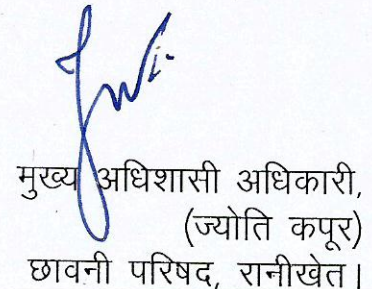 मुख्य अधिशासी अधिकारी,
(ज्योति कपूर)
छावनी परिषद, रानीखेत।